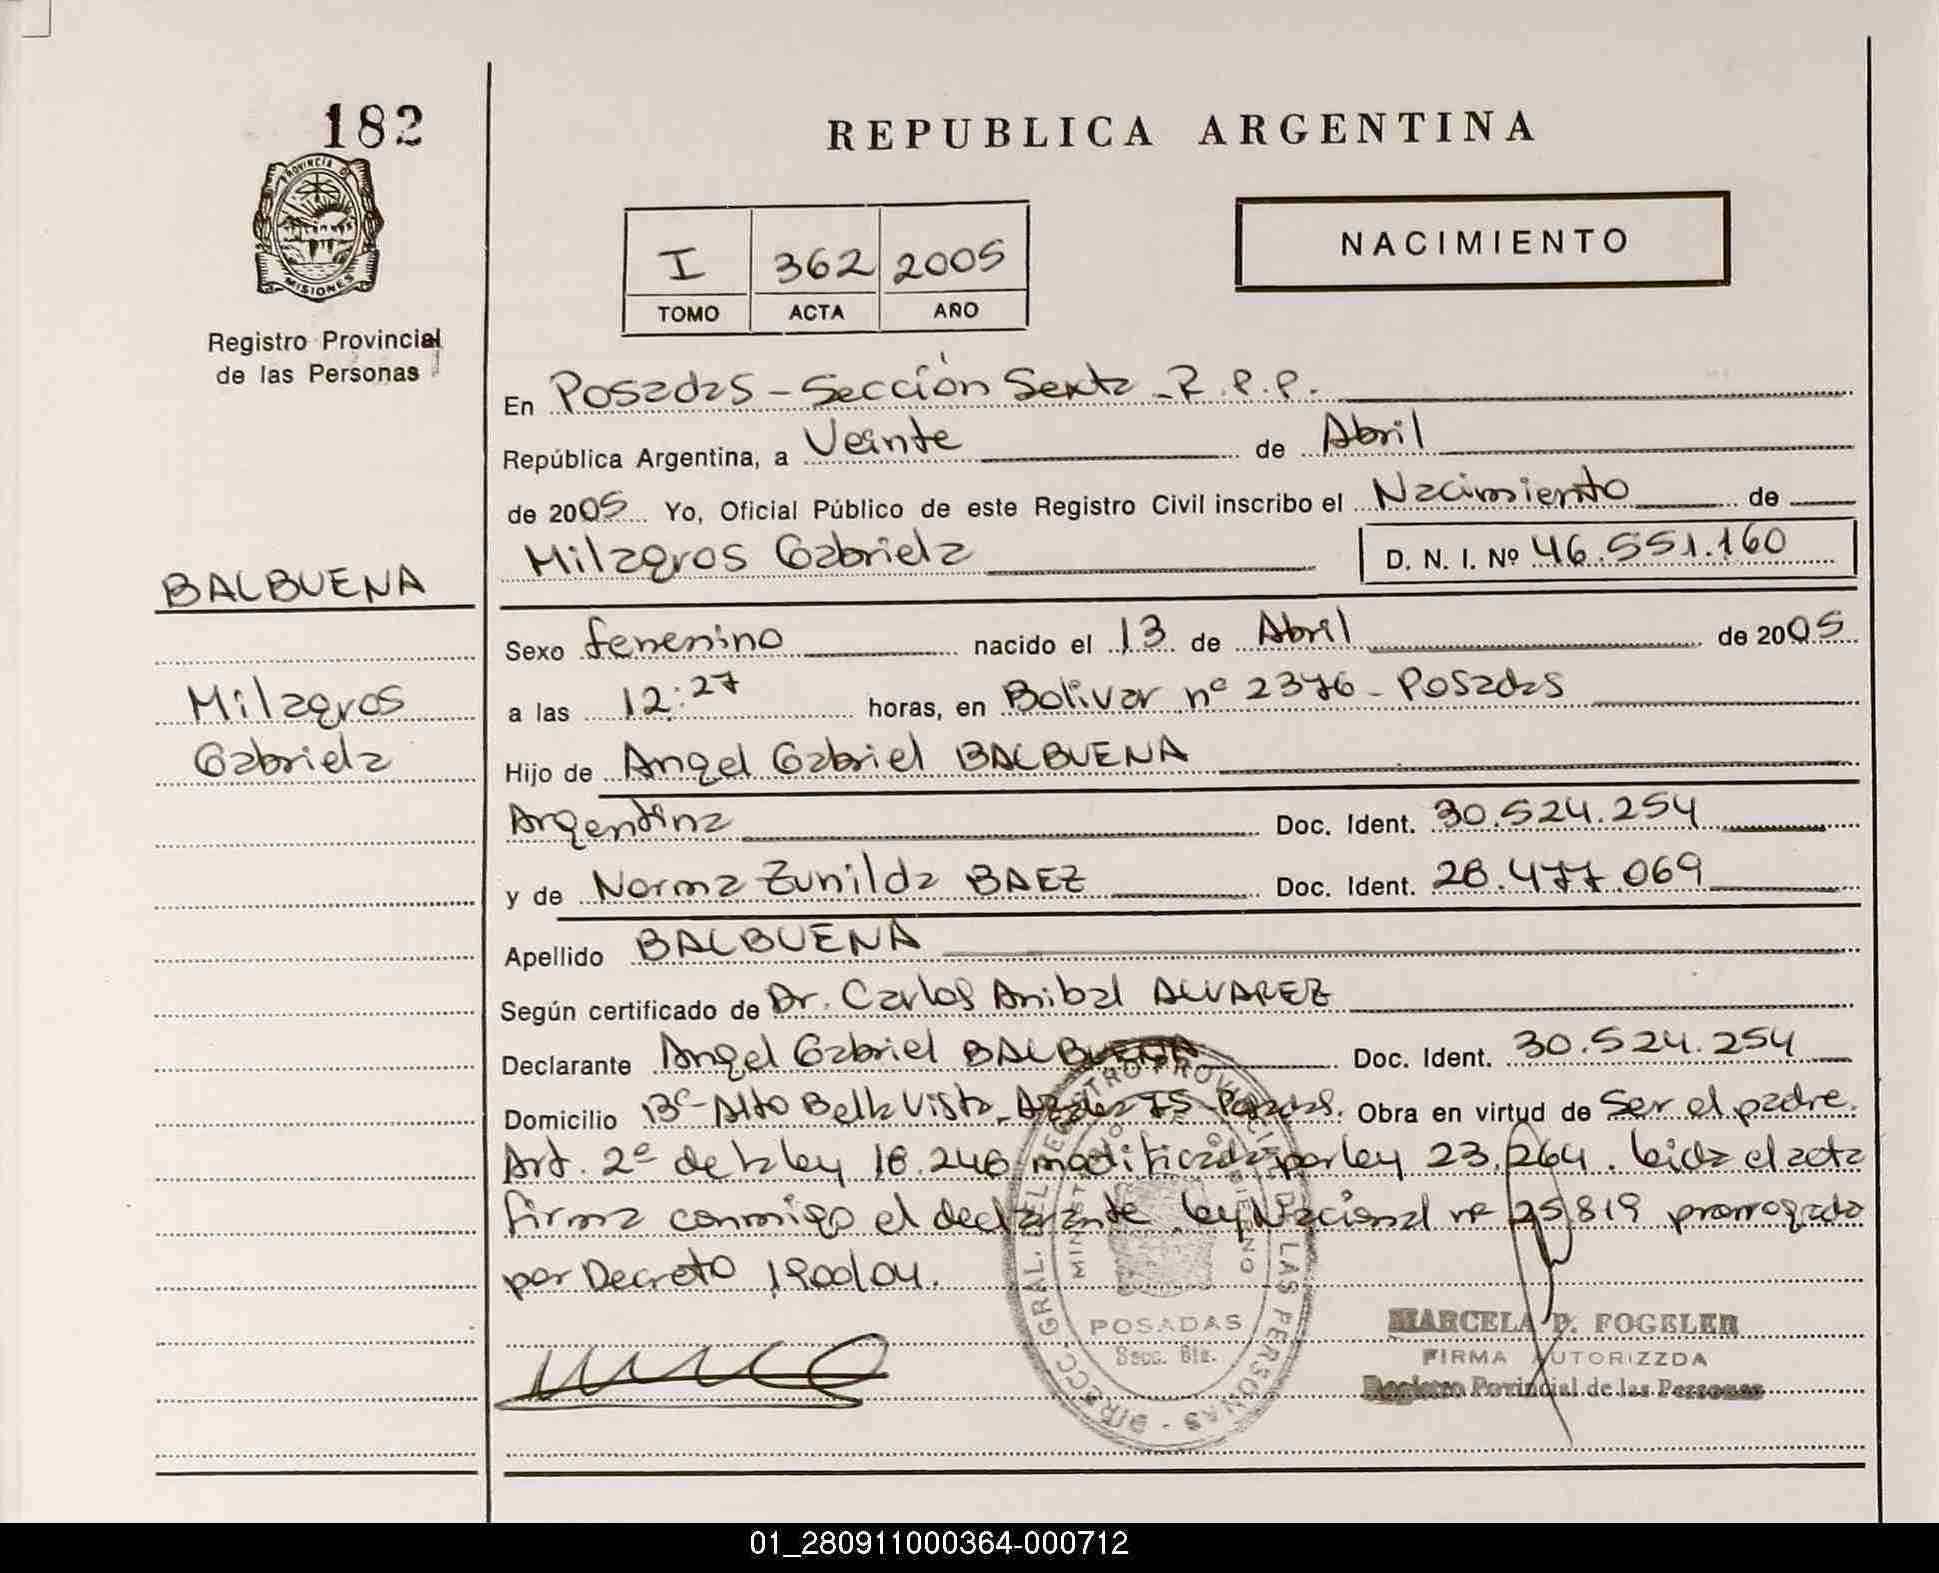 182
PROVINCIA DE
MISIONES
Registro Provincial
de las Personas
REPUBLICA ARGENTINA
I 362 2005
TOMO ACTA AÑO
NACIMIENTO
En Posadas - Sección Sexta - R.P.P.
República Argentina, a Veinte de Abril
de 2005 Yo, Oficial Público de este Registro Civil inscribo el Nacimiento de
Milagros Gabriela D. N. I. Nº 46.551.160
BALBUENA
Milagros
Gabriela
Sexo femenino nacido el 13 de Abril de 2005
a las 12:27 horas, en Bolivar nº 2376 - Posadas
Hijo de Angel Gabriel BALBUENA
Argentina Doc. Ident. 30.524.254
y de Norma Zunilda BAEZ Doc. Ident. 28.477.069
Apellido BALBUENA
Según certificado de Dr. Carlos Anibal ALVAREZ
Declarante Angel Gabriel BALBUENA Doc. Ident. 30.524.254
Domicilio Bº Alto Bella Vista - Posadas. Obra en virtud de Ser el padre.
Art. 2º de la ley 18.248 modificada por ley 23.264. leida el acta
firma conmigo el declarante ley Nacional nº 25.819 prorrogada
por Decreto 1900/04.
DIRECC. GRAL. DEL REGISTRO PROVINCIAL DE LAS PERSONAS
POSADAS
Secc. 6ta.
MARCELA P. FOGELER
FIRMA AUTORIZZDA
Registro Povincial de las Personas
01_280911000364-000712